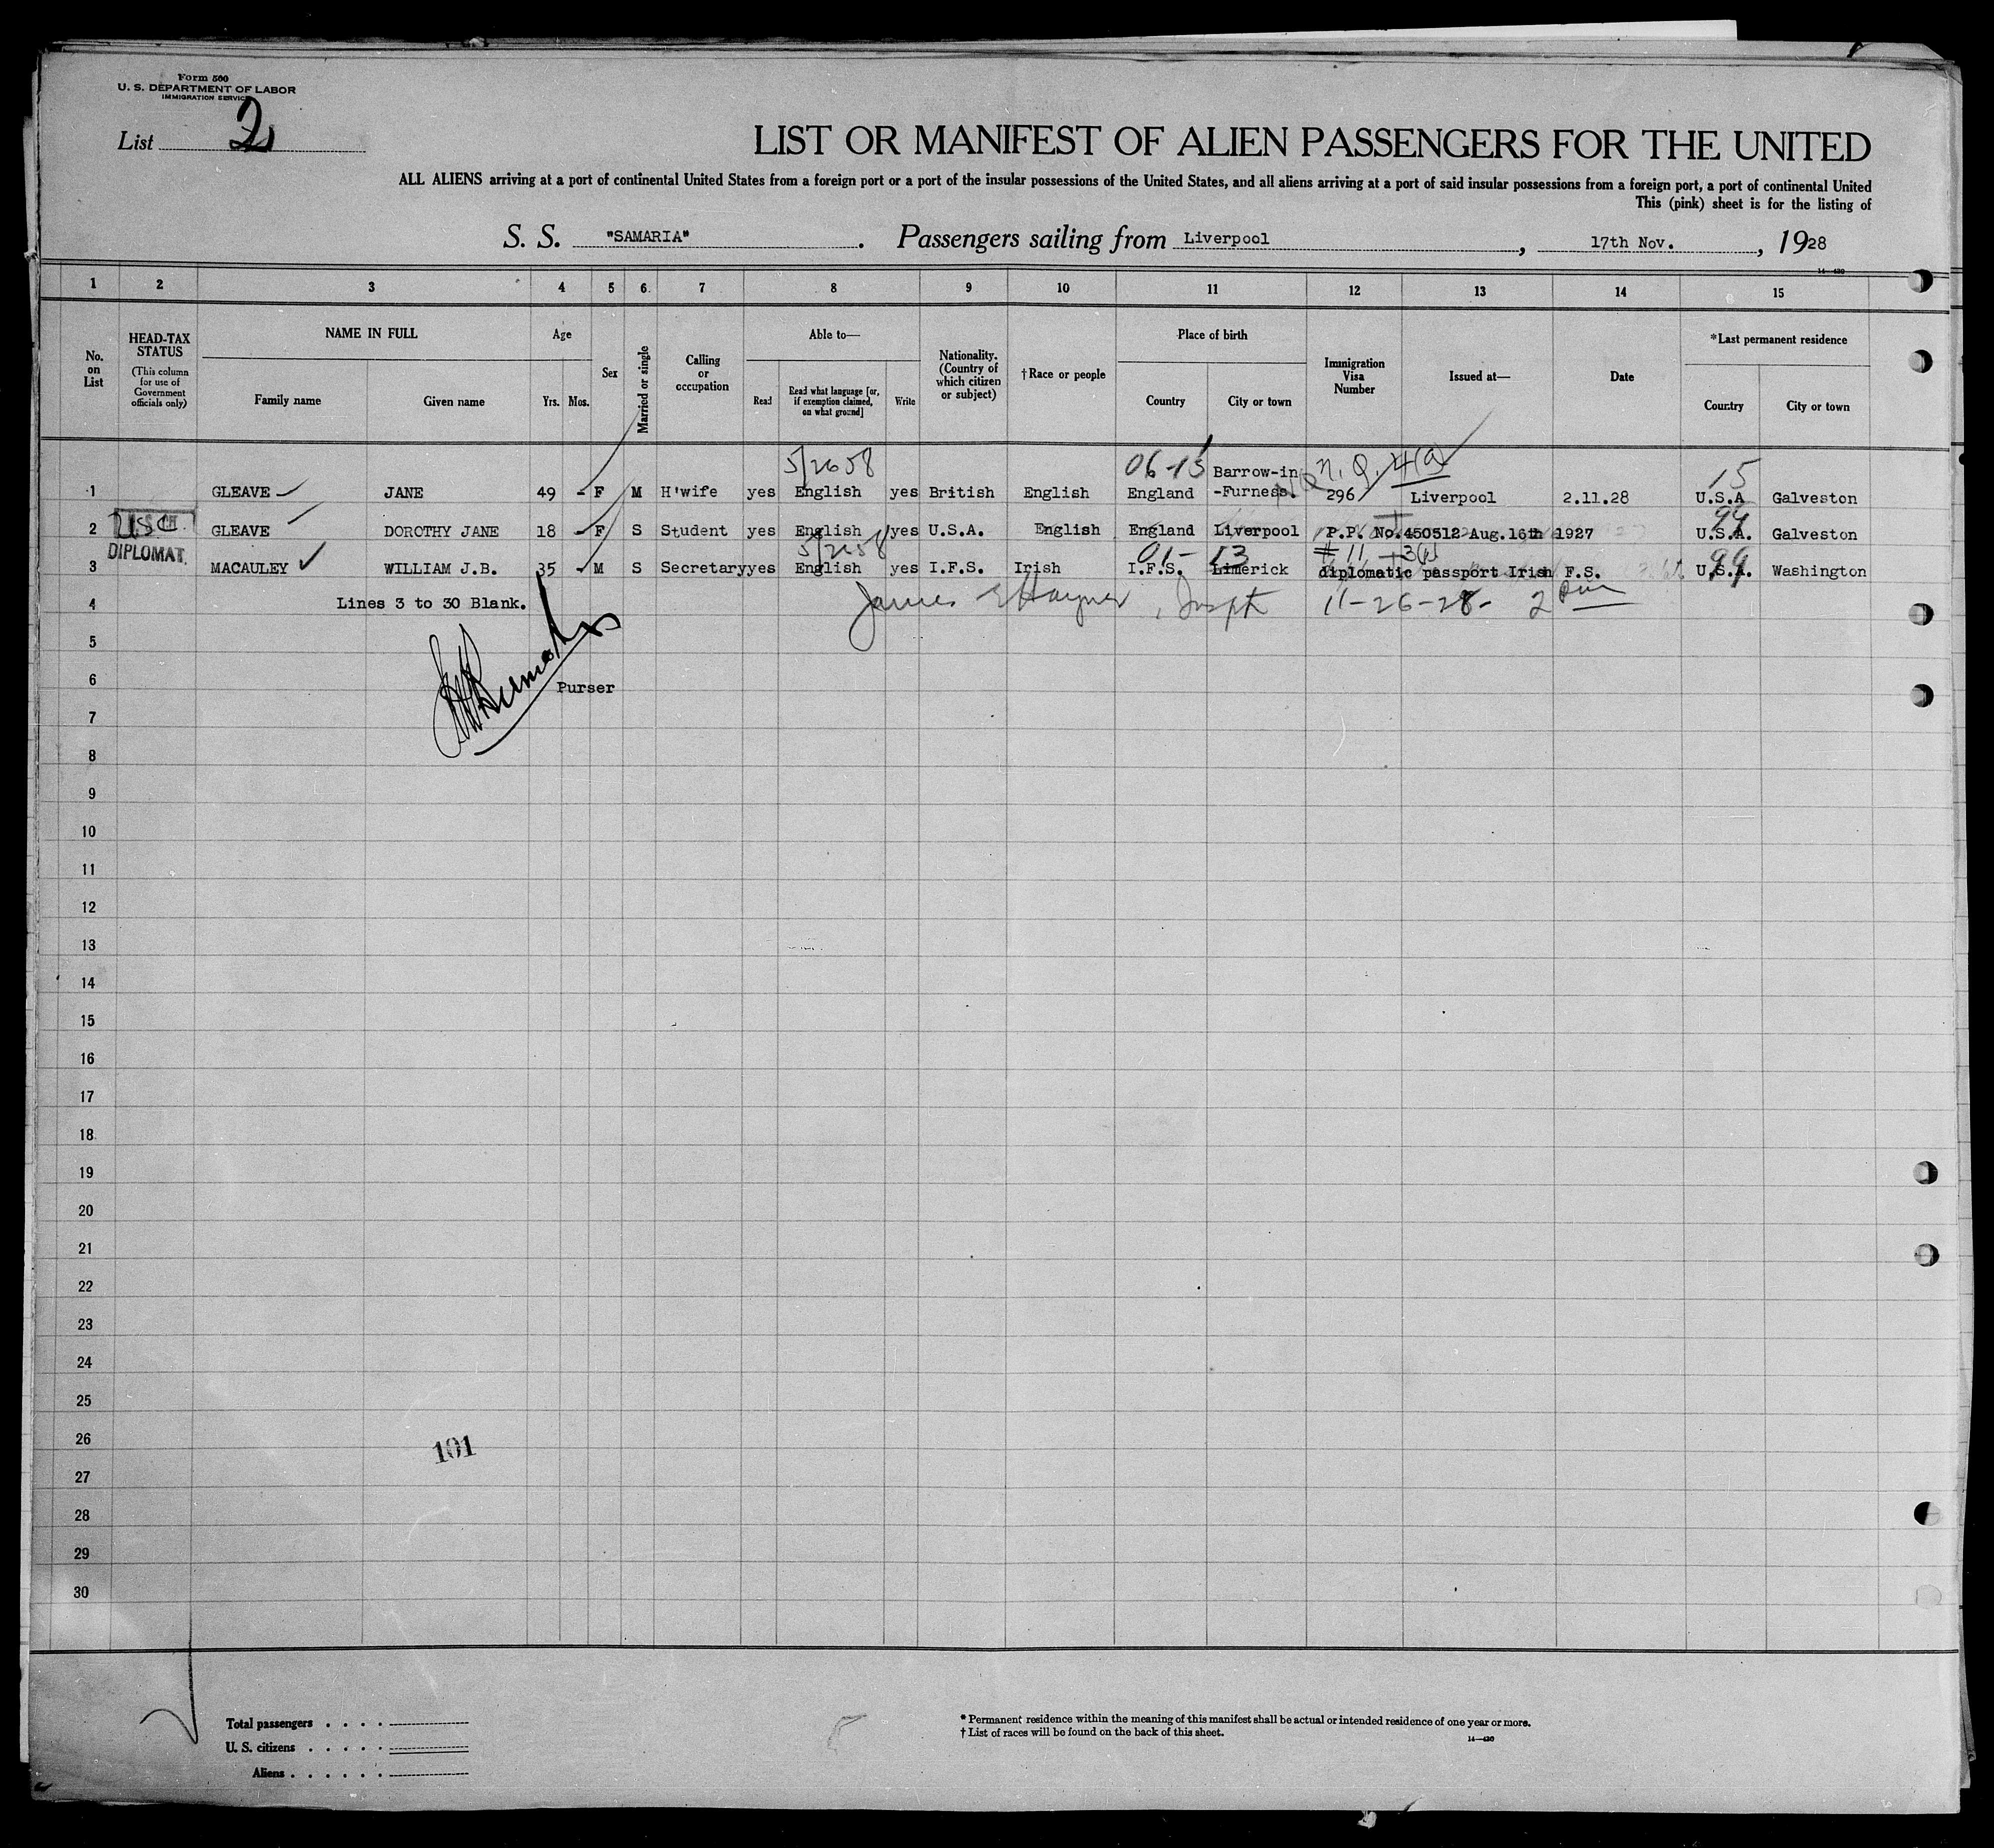 Form 500
U. S. DEPARTMENT OF LABOR
IMMIGRATION SERVICE
List 2
LIST OR MANIFEST OF ALIEN PASSENGERS FOR THE UNITED
ALL ALIENS arriving at a port of continental United States from a foreign port or a port of the insular possessions of the United States, and all aliens arriving at a port of said insular possessions from a foreign port, a port of continental United
This (pink) sheet is for the listing of
S. S. "SAMARIA". Passengers sailing from Liverpool, 17th Nov., 1928
14—420
1 2 3 4 5 6 7 8 9 10 11 12 13 14 15
No. on List
HEAD-TAX STATUS (This column for use of Government officials only)
NAME IN FULL
Family name Given name
Age
Yrs. Mos.
Sex
Married or single
Calling or occupation
Able to—
Read
Read what language [or, if exemption claimed, on what ground]
Write
Nationality. (Country of which citizen or subject)
†Race or people
Place of birth
Country City or town
Immigration Visa Number
Issued at—
Date
*Last permanent residence
Country City or town
5/2658 06-15 Barrow-in N.Q. 4(a) 15
1 GLEAVE JANE 49 - F M H'wife yes English yes British English England -Furness. 296 Liverpool 2.11.28 U.S.A Galveston
99
2 USC GLEAVE DOROTHY JANE 18 - F S Student yes English yes U.S.A. English England Liverpool P.P. No.450512 Aug.16th 1927 U.S.A. Galveston
DIPLOMAT. 5/2658 01-13 #11 3(1) 99
3 MACAULEY WILLIAM J.B. 35 - M S Secretary yes English yes I.F.S. Irish I.F.S. Limerick diplomatic passport Irish F.S. U.S.A. Washington
4 Lines 3 to 30 Blank. James Hayner, Inspt 11-26-28- 2 Pm
5
6 Purser
7
8
9
10
11
12
13
14
15
16
17
18
19
20
21
22
23
24
25
26 101
27
28
29
30
Total passengers . . . .
U. S. citizens . . . . .
Aliens . . . . . .
* Permanent residence within the meaning of this manifest shall be actual or intended residence of one year or more.
† List of races will be found on the back of this sheet.
14—420